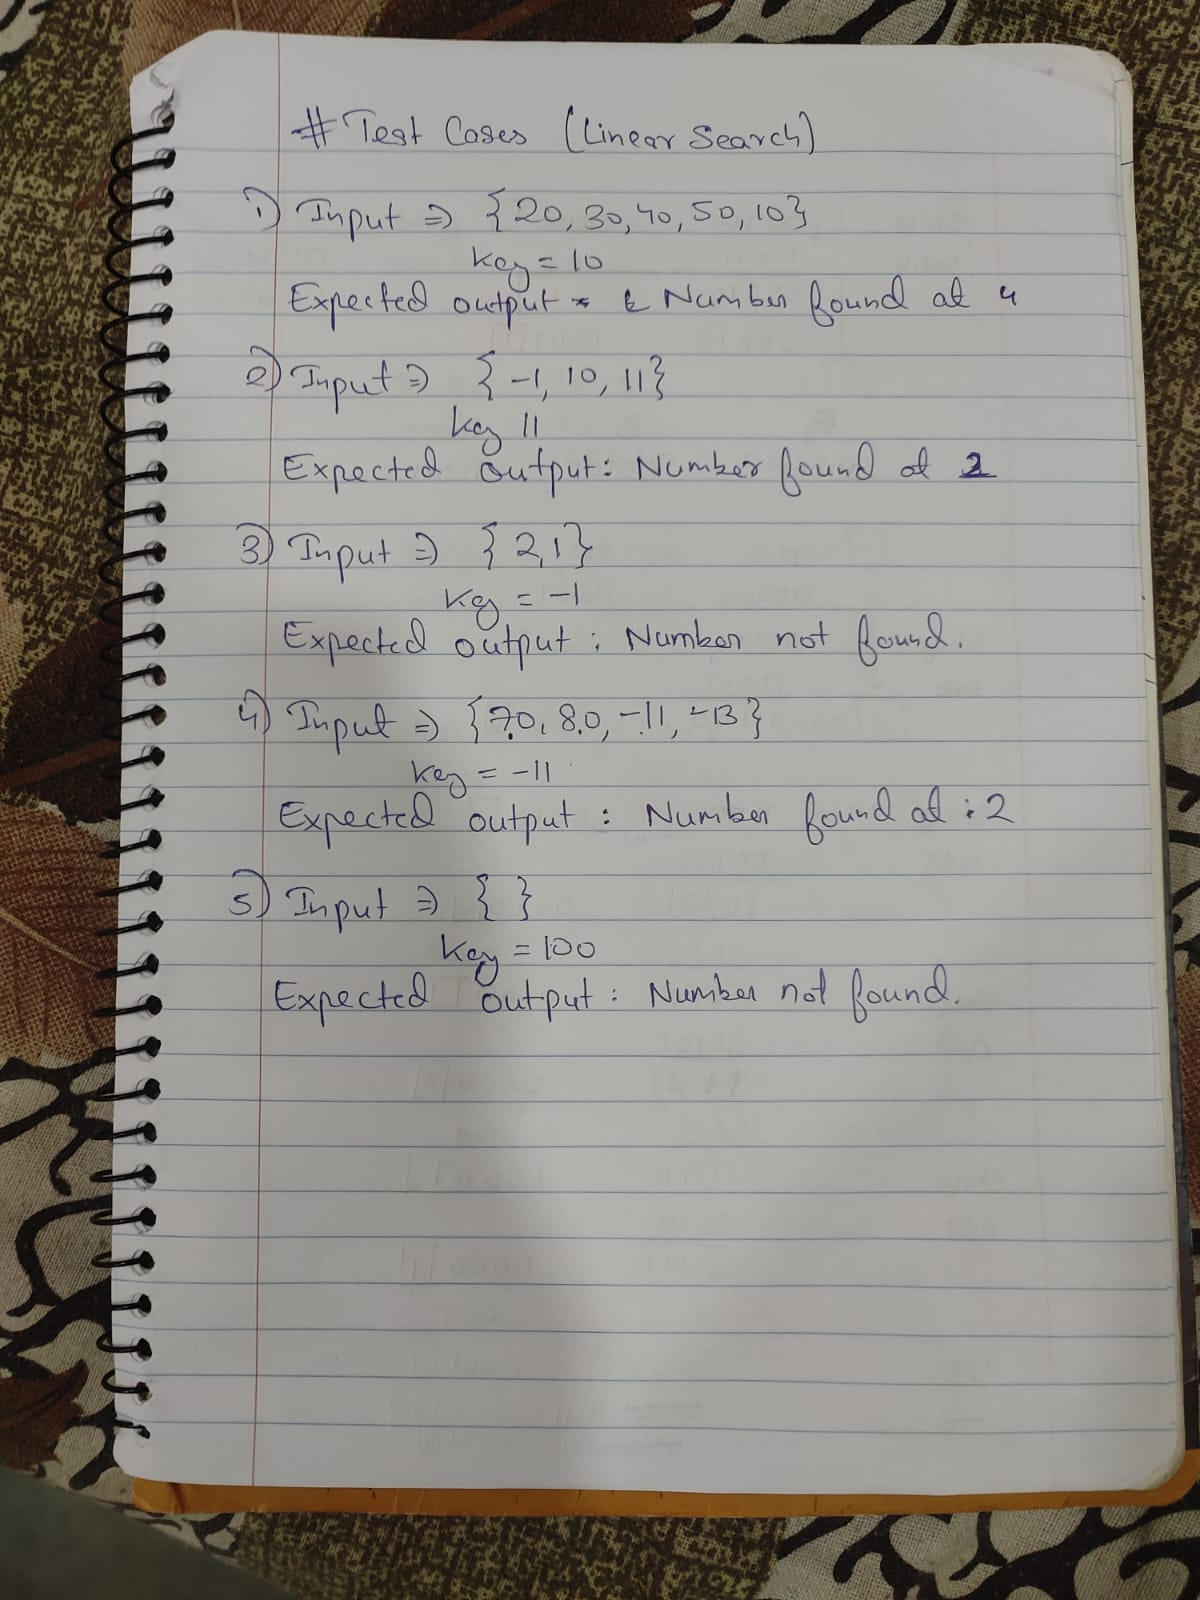 # Test Cases (Linear Search)
1) Input ⇒ {20, 30, 40, 50, 10}
key = 10
Expected output Number found at 4
2) Input ⇒ {-1, 10, 11}
key 11
Expected output: Number found at 2
3) Input ⇒ {2,1}
key = -1
Expected output : Number not found.
4) Input ⇒ {70, 80, -11, -13}
key = -11
Expected output : Number found at : 2
5) Input ⇒ { }
key = 100
Expected output : Number not found.